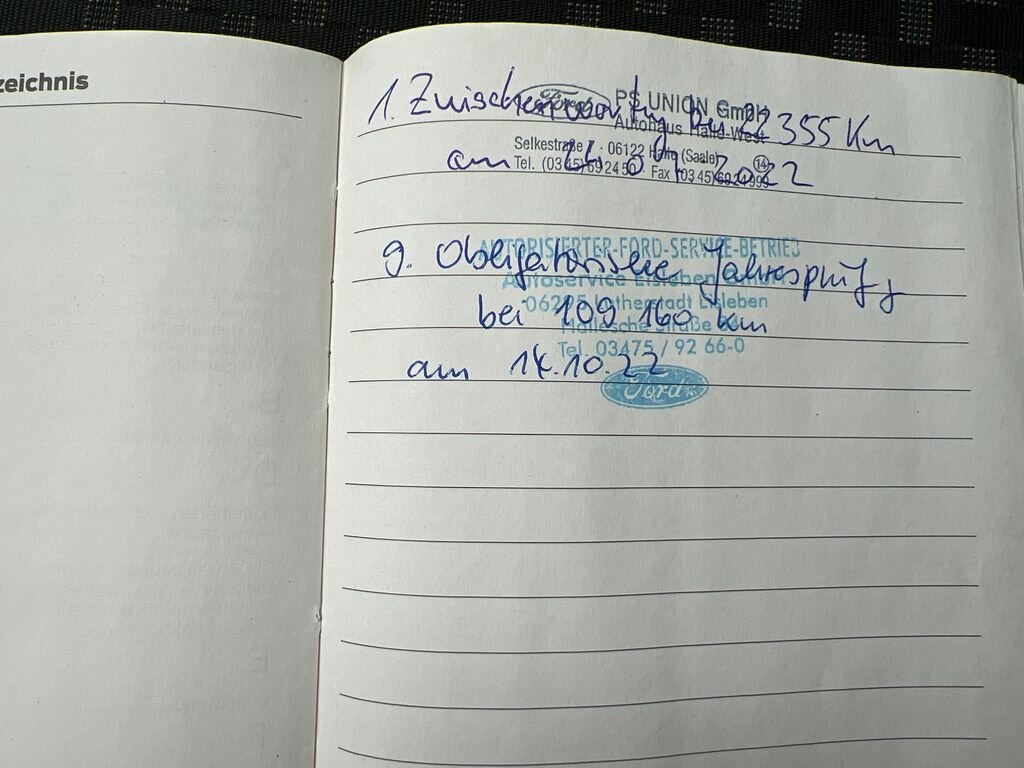 zeichnis
Ford
PS UNION GmbH
1. Zwischenwartung bei 355 Km
Autohaus Halle-West
Selkestraße · 06122 Halle (Saale)
am 2022
Tel. (03 45) 69 24 50 · Fax (03 45) 69 24 999
14
AUTORISIERTER-FORD-SERVICE-BETRIEB
9. Obligatorische Jahresprüfg
Autoservice Eisleben GmbH
06295 Lutherstadt Eisleben
bei 109 160 km
Hallesche Straße
Tel. 03475 / 92 66-0
am 14.10.22
Ford